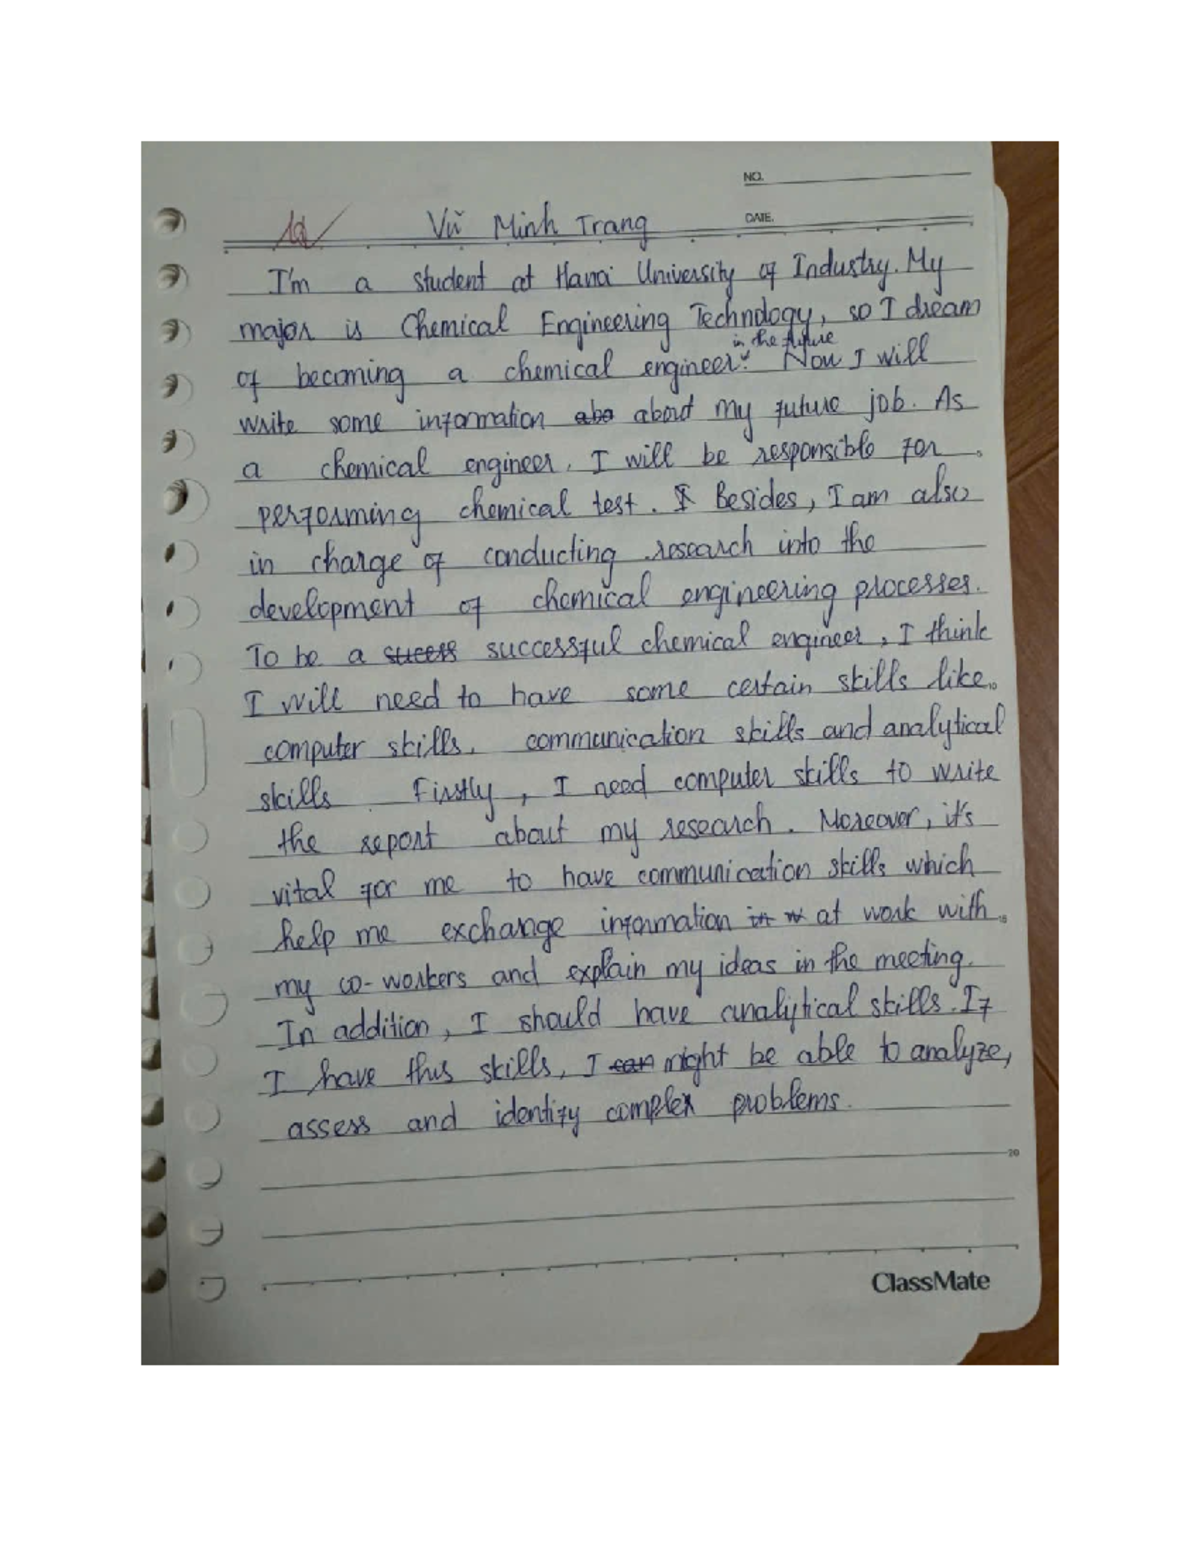 NO.
Vũ Minh Trang DATE.
I'm a student at Hanoi University of Industry. My
major is Chemical Engineering Technology, so I dream
in the future
of becoming a chemical engineer. Now I will
write some information abo about my future job. As
a chemical engineer, I will be responsible for
performing chemical test. I Besides, I am also
in charge of conducting research into the
development of chemical engineering processes.
To be a succes successful chemical engineer, I think
I will need to have some certain skills like
computer skills, communication skills and analytical
skills. Firstly, I need computer skills to write
the report about my research. Moreover, it's
vital for me to have communication skills which
help me exchange information in w at work with
my co-workers and explain my ideas in the meeting.
In addition, I should have analytical skills. If
I have this skills, I can might be able to analyze,
assess and identify complex problems.
20
ClassMate